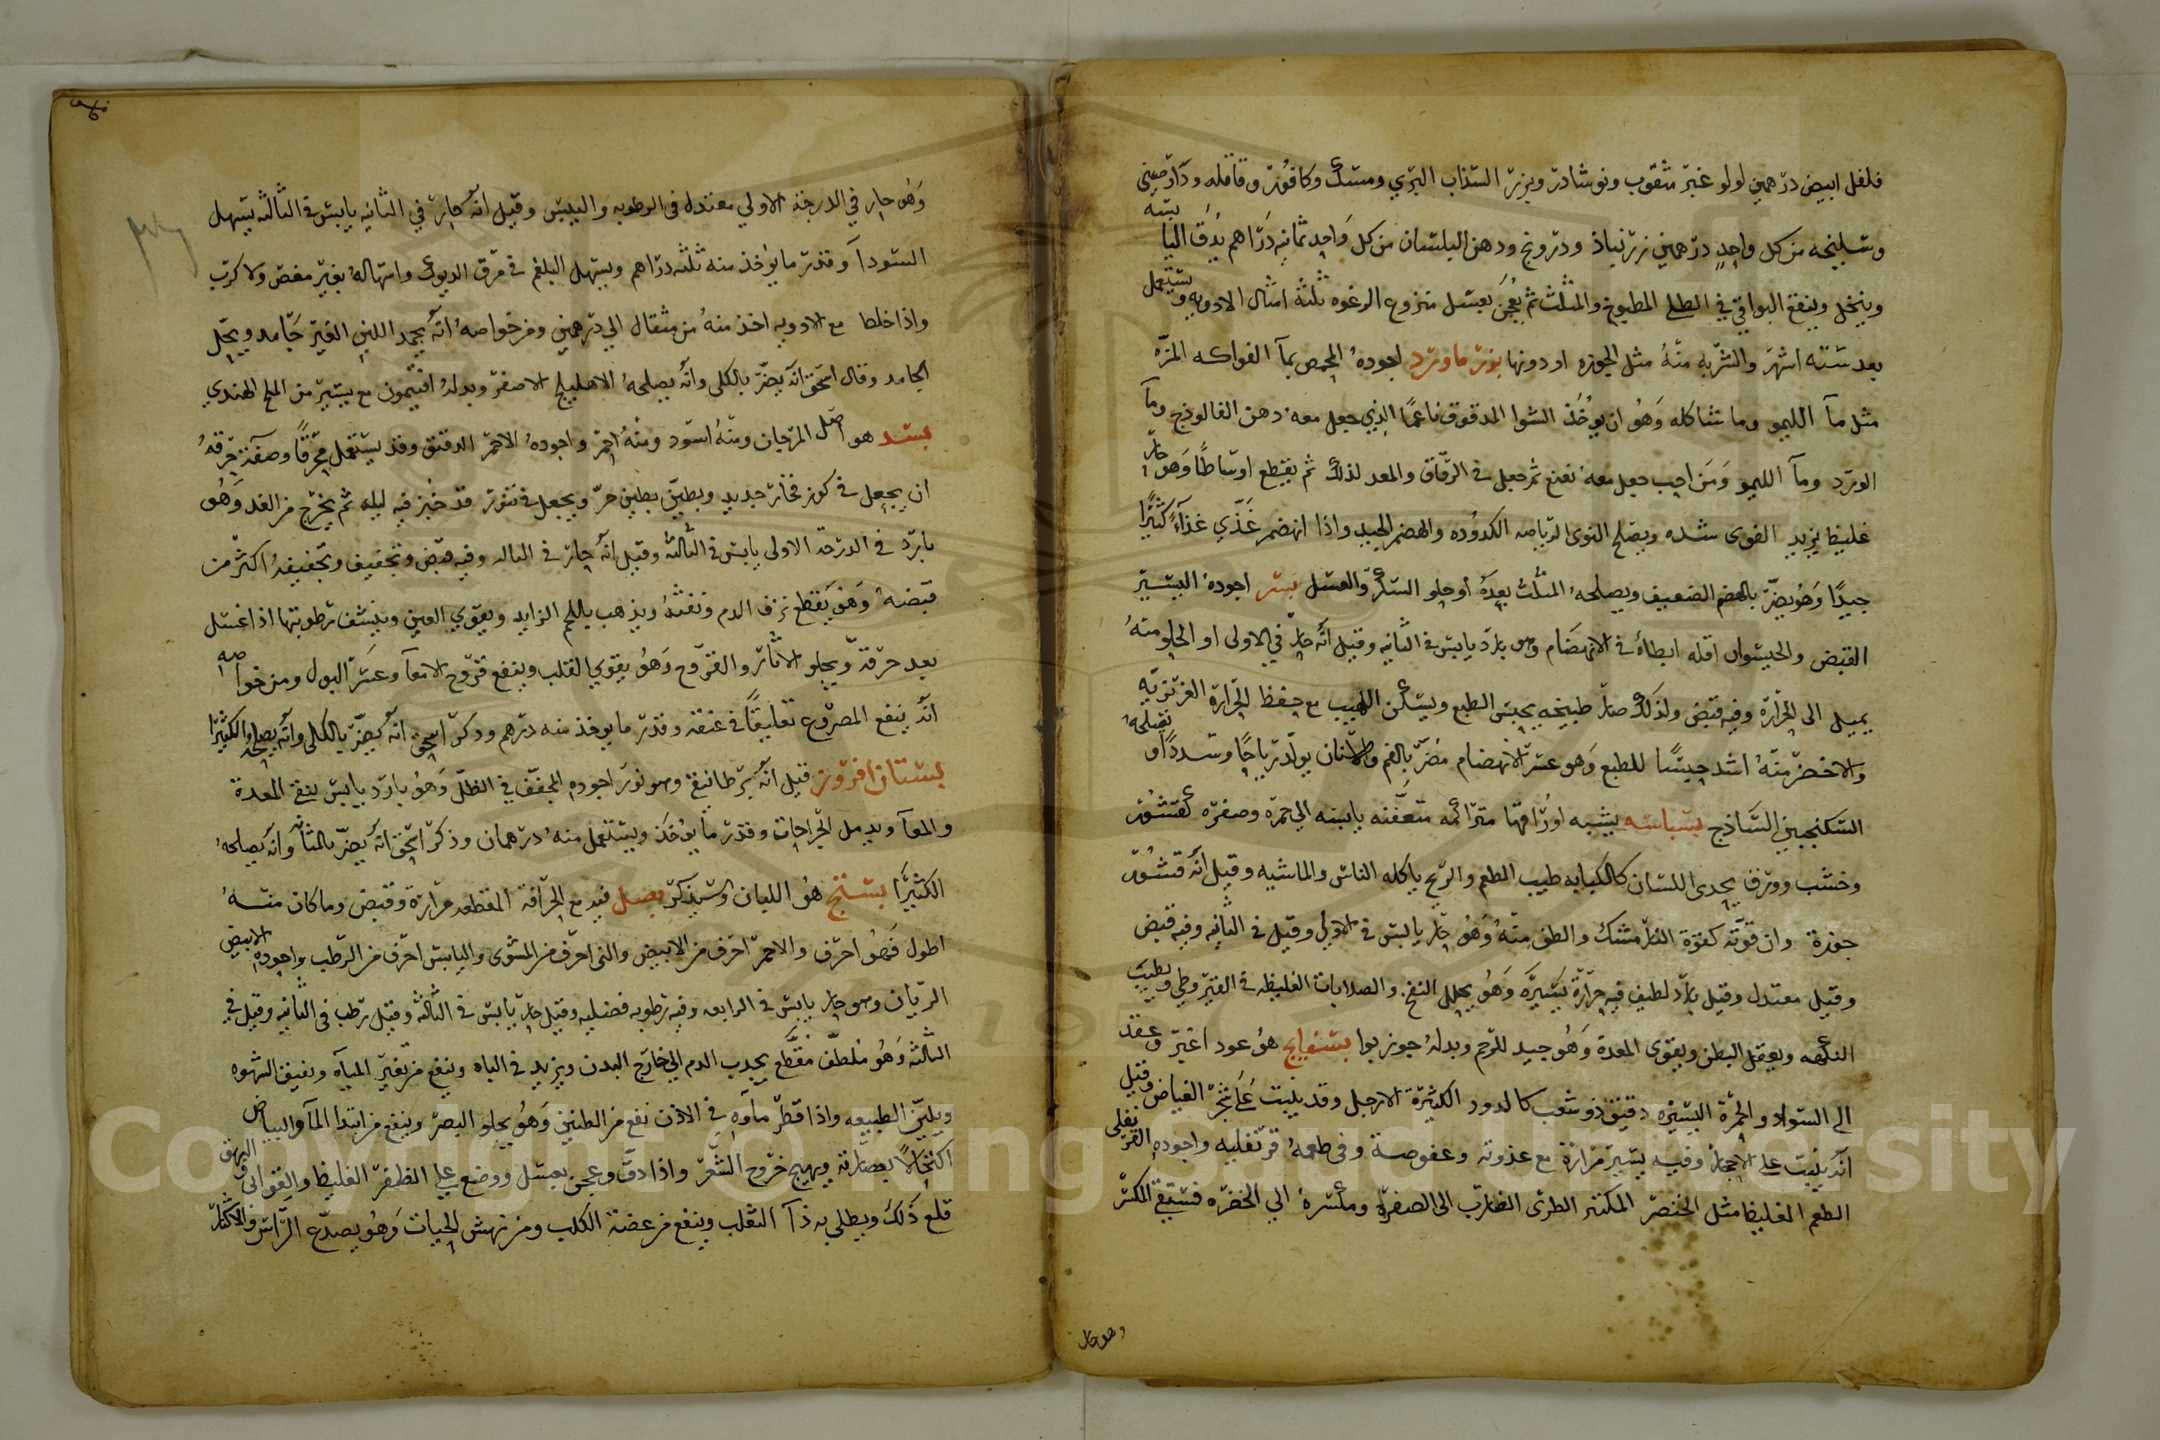 فلفل ابيض درهمين لولو غير مثقوب ونوشادر وبزر السذاب البري ومسك وكافور وقاقله ودارصيني
وسليخه من كل واحد درهمين زرنباد ودرونج ودهن البلسان من كل واحد ثمانيه دراهم يدق اليابسه
وينخل وينقع البواقي في الطلا المطبوخ والمثلث ثم يعجن بعسل منزوع الرغوه ثلثة امثال الادويه ويستعمل
بعد ستة اشهر والشربه منه مثل الجوزه او دونها بزماورد اجوده المحمص بمآ الفواكه المزه
مثل مآ الليمو وما شاكله وهو ان يؤخذ الشوا المدقوق ناعما الذي جعل معه دهن الفالوذج ومآ
الورد ومآ الليمو ومن احب جعل معه نعنع ثم جعل في الرقاق والمعد لذلك ثم يقطع اوساطا وهو حار
غليظ يزيد القوى شده ويصلح لذوي الرياضه الكدوده والهضم الجيد واذا انهضم غذي غذآء كثيرا
جيدا وهو يضر بالهضم الضعيف ويصلحه المثلث بعده او حلو السكر والعسل بسر اجوده البسير
القبض والجيسوان اقله ابطاء في الانهضام وهو بارد يابس في الثانيه وقيل انه حار في الاولى او الحلو منه
يميل الى الحرارة وفيه قبض ولذلك صار طبيخه يحبس الطبع ويسكن اللهيب مع حفظ الحرارة الغريزيه
والاخضر منه اشد حبسا للطبع وهو عسر الانهضام مضر بالفم والاسنان يولد رياحا وسددا ويصلحه
السكنجبين الساذج بسباسه يشبه اوراقها متراكمه متعففه يابسه الى حمرة وصفره كقشور
وخشب وورق يحذى اللسان كالكبابه طيب الطعم والريح ياكله الناس والماشيه وقيل انه قشور
جوزة وان قوته كقوة النارمشك والطف منه وهو حار يابس في الاولى وقيل في الثانيه وفيه قبض
وقيل معتدل وقيل بارد لطيف فيه حرارة يسيره وهو يحلل النفخ والصلابات الغليظه في القيروطي ويطيب
النكهه ويعقل البطن ويقوى المعدة وهو جيد للرحم وبدله جوزبوا بسفايج هو عود اغبر وعقد
الى السواد والحمرة اليسيره دقيق ذو شعب كالدود الكثيرة الارجل وقد ينبت على شجر الغياض وقيل
انه ينبت على الاحجار وفيه يسير مرارة مع عذوبة وعفوصة وفى طعمه قرنفليه واجوده القرنفلى
الطعم الغليظ مثل الخنصر المكتنز الطرى الضارب الى الصفره ومكسره الى الخضره فستقى المكسر
وهو حار
وهو حار في الدرجة الاولي معتدل فى الرطوبه واليبس وقيل انه حار في الثانيه يابس في الثالثه يسهل
السودآ وقدر ما يؤخذ منه ثلثه دراهم ويسهل البلغم في مرق الديوك واسهاله بغير مغص ولا كرب
واذا خلط مع الادويه اخذ منه من مثقال الي درهمين ومن خواصه انه يجمد اللبن الغير جامد ويحل
الجامد وقال اسحق انه يضر بالكلى وانه يصلحه الاهليلج الاصفر وبدله افتيمون مع يسير من الملح الهندي
بسد هو اصل المرجان ومنه اسود ومنه احمر واجوده الاحمر الدقيق وقد يستعمل محرقا وصفة حرقه
ان يجعل في كوز فخار جديد ويطين بطين حر ويجعل في تنور قد خبز فيه ليله ثم يخرج من الغد وهو
بارد في الدرجة الاولى يابس في الثالثه وقيل انه حار في الثالثه وفيه قبض وتجفيف وتجفيفه اكثر من
قبضه وهو يقطع نزف الدم ونفثه ويذهب باللحم الزايد ويقوي العين وينشف رطوبتها اذا غسل
بعد حرقه ويجلو الاثار والقروح وهو يقوي القلب وينفع قروح الامعآ وعسر البول ومن خواصه
انه ينفع المصروع تعليقا في عنقه وقدر ما يوخذ منه درهم وذكر اسحق انه يضر بالكلى وانه يصلحه الكثيرا
بستان افروز قيل انه برطانيقي وهو نور اجوده المجفف في الظل وهو بارد يابس ينفع المعدة
والمعآ ويدمل الجراحات وقدر ما يؤخذ ويستعمل منه درهمان وذكر اسحق انه يضر بالمثانه وانه يصلحه
الكثيرا بستج هو اللبان وسيذكر بصل فيه مع الحرافة المقطعه مرارة وقبض وما كان منه
اطول فهو احرف والاحمر احرف من الابيض والني احرف من المشوى واليابس احرف من الرطب واجوده الابيض
الريان وهو حار يابس في الرابعه وفيه رطوبه فضليه وقيل حار يابس في الثالثه وقيل رطب فى الثانيه وقيل في
الثالثه وهو ملطف مقطع يجذب الدم الي خارج البدن ويزيد في الباه وينفع من تغير المياه ويفتق الشهوه
ويلين الطبيعه واذا قطر مآوه في الاذن نفع من الطنين وهو يجلو البصر وينفع من ابتدا المآ والبياض
اكتحالا بعصارته ويهيج خروج الشعر واذا دق وعجن بعسل ووضع على الظفر الغليظ والقوابى والبهق
قلع ذلك ويطلى به دآ الثعلب وينفع من عضة الكلب ومن نهش الحيات وهو يصدع الراس والاكثار
Copyright © King Saud University